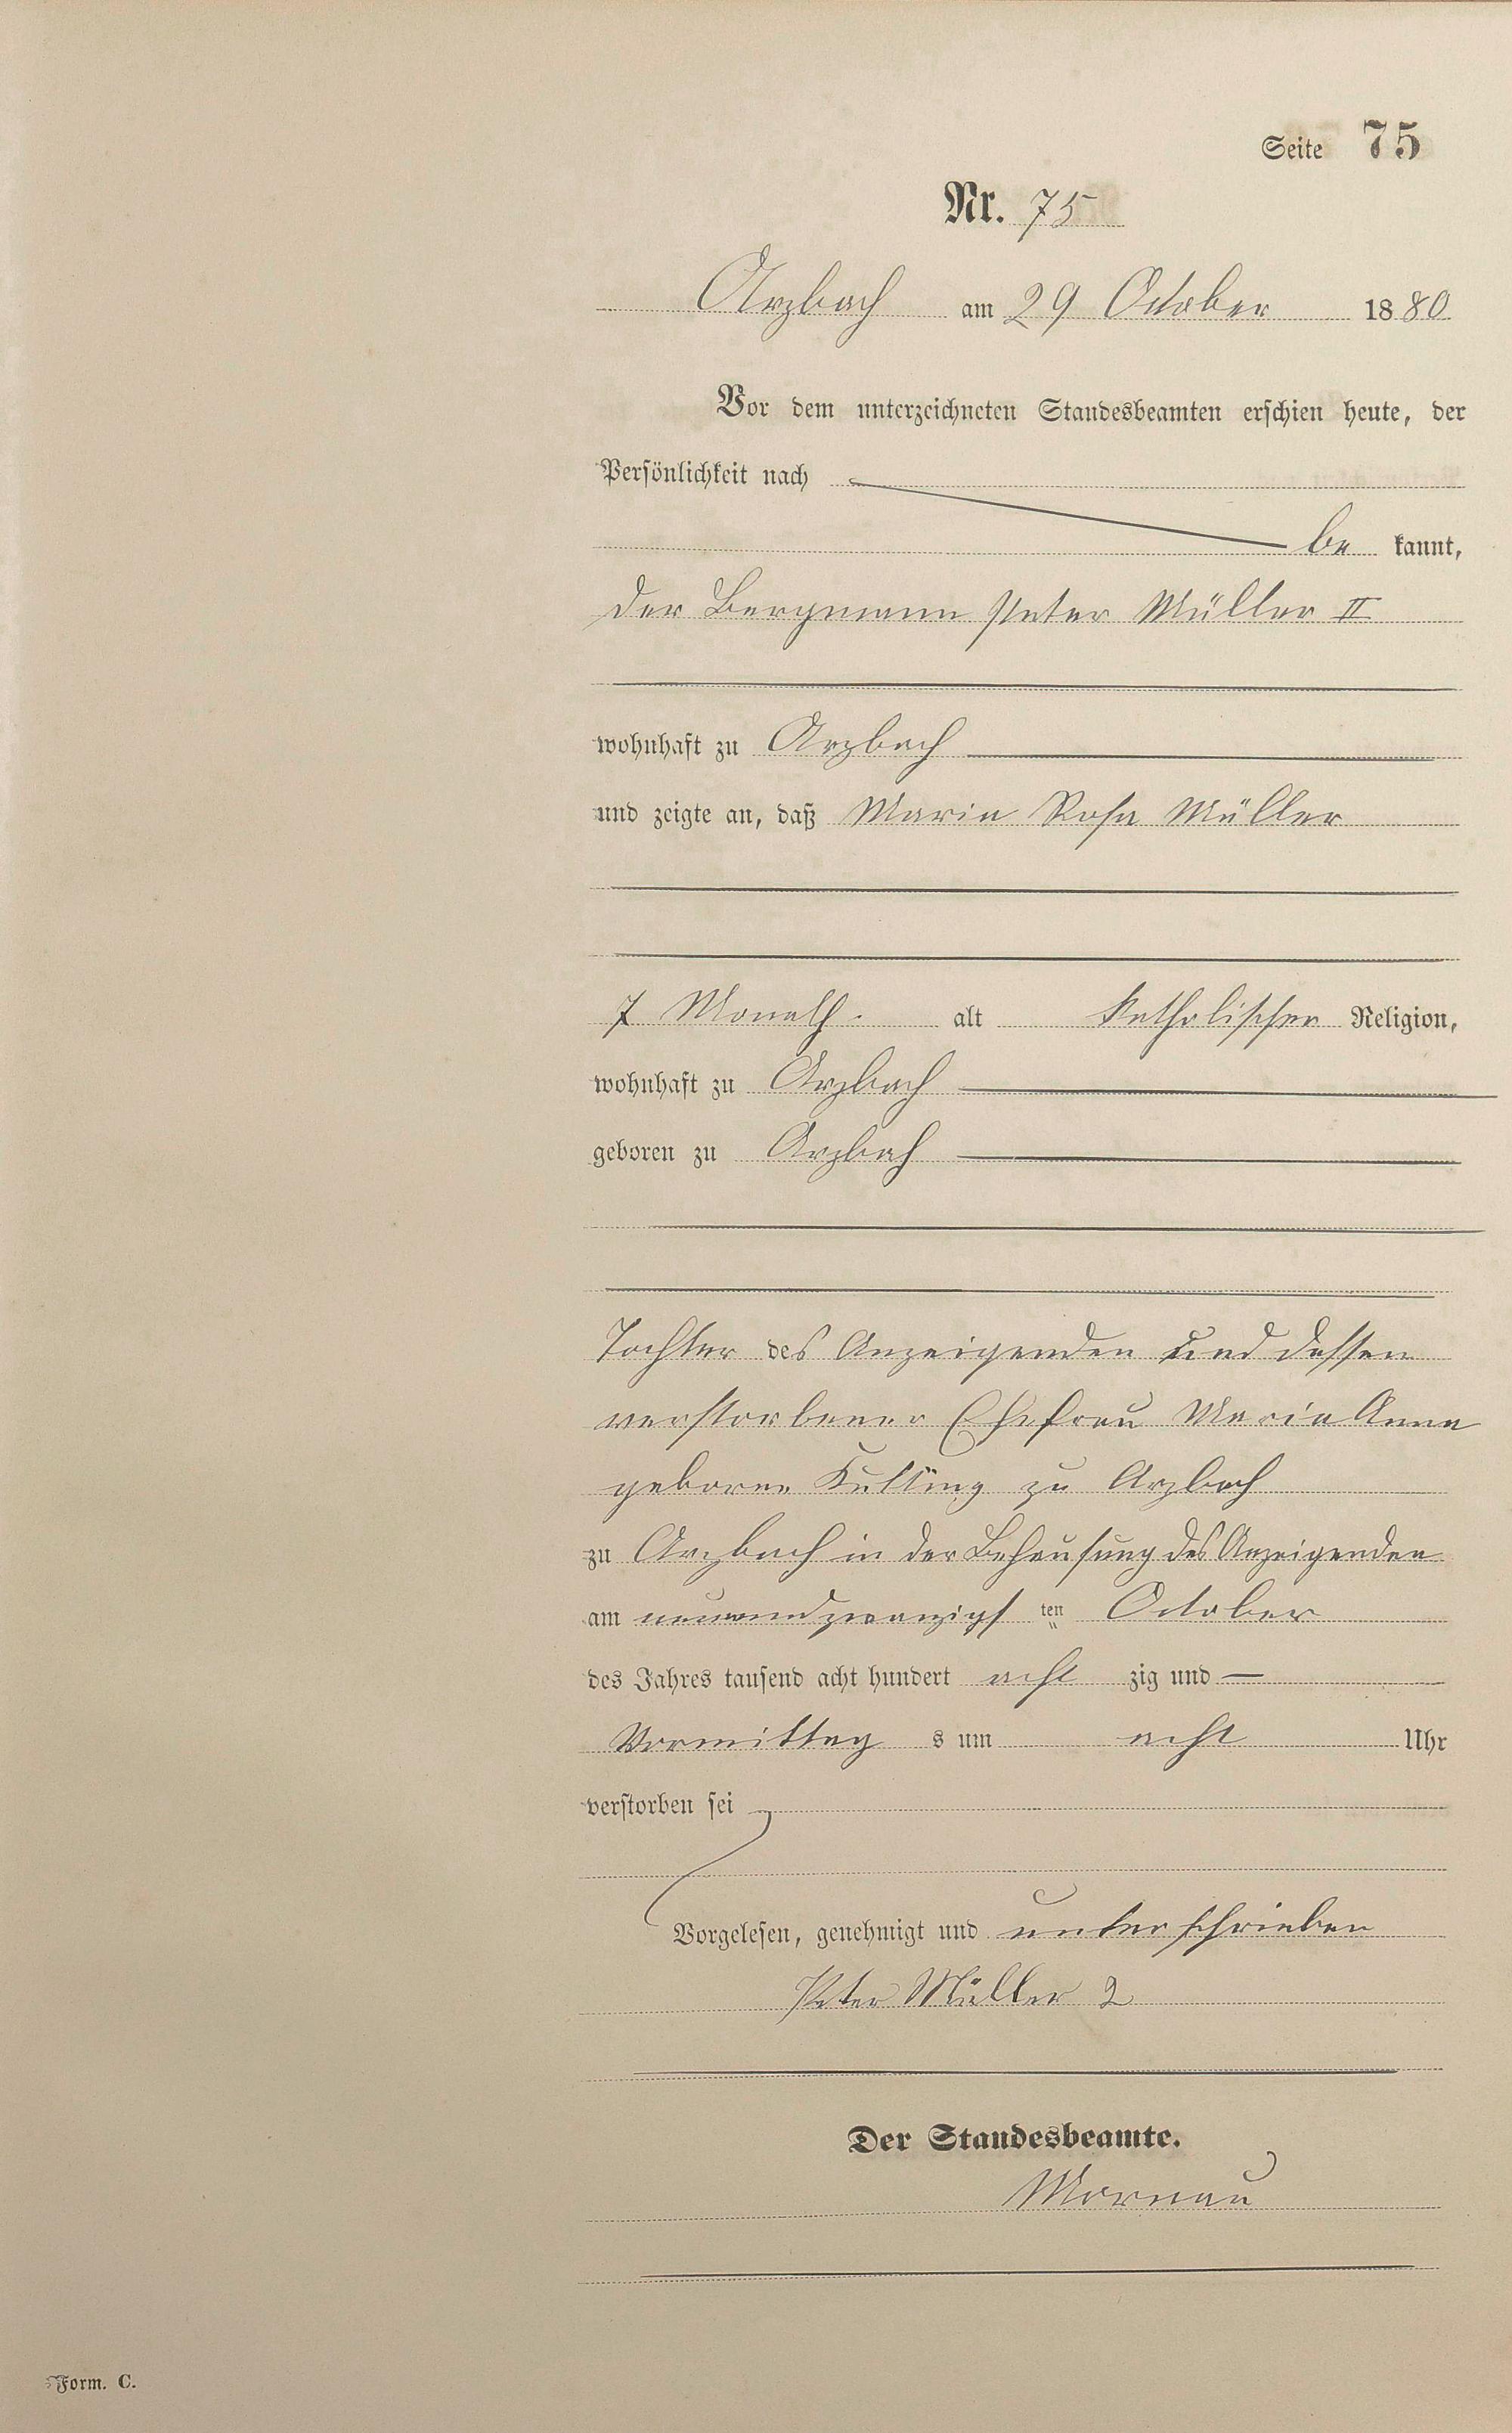 Seite 75
Nr. 75
Arzbach am 29 October 1880
Vor dem unterzeichneten Standesbeamten erschien heute, der
Persönlichkeit nach
be kannt,
der Bergmann Peter Müller II
wohnhaft zu Arzbach
und zeigte an, daß Maria Rosa Müller
7 Monath. alt katholischer Religion,
wohnhaft zu Arzbach
geboren zu Arzbach
Tochter des Anzeigenden und dessen
verstorbener Ehefrau Maria Anna
geborne zu Arzbach
zu Arzbach in der Behausung des Anzeigenden
am neunundzwanzigs ten October
des Jahres tausend acht hundert acht zig und
Vormittag s um acht Uhr
verstorben sei
Vorgelesen, genehmigt und unterschrieben
Peter Müller 2
Der Standesbeamte.
Mornau
Form. C.